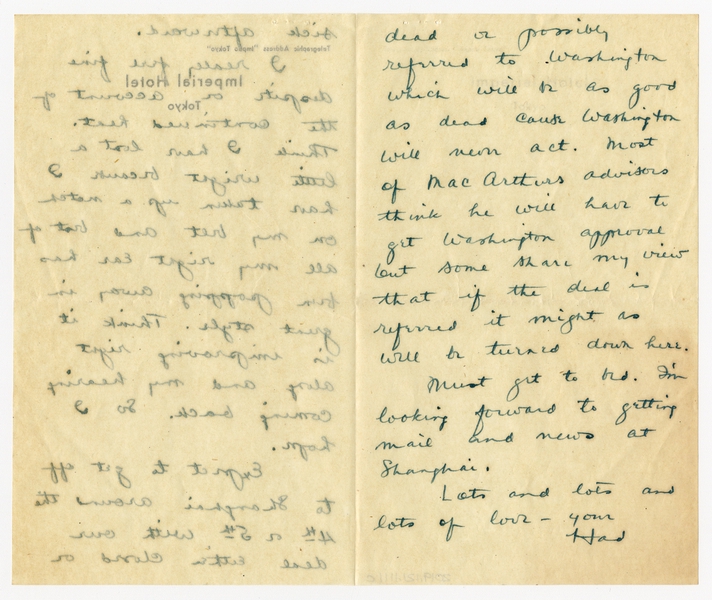 Telegraphic Address "Impho Tokyo"
Imperial Hotel
Tokyo
sick afterward.
I really feel fine
despite or account of
the continued heat.
Think I have lost a
little weight because I
have taken up a notch
on my belt and best of
all my right ear has
been popping away in
great style. Think it
is improving right
along and my hearing
coming back. So I
hope.
Expect to get off
to Shanghai around the
4th or 5th with our
deal either closed or
dead or possibly
referred to Washington
which will be as good
as dead cause Washington
will never act. Most
of MacArthurs advisors
think he will have to
get Washington approval
but some share my view
that if the deal is
referred it might as
well be turned down here.
Must get to bed. I'm
looking forward to getting
mail and news at
Shanghai.
Lots and lots and
lots of love - your
Had